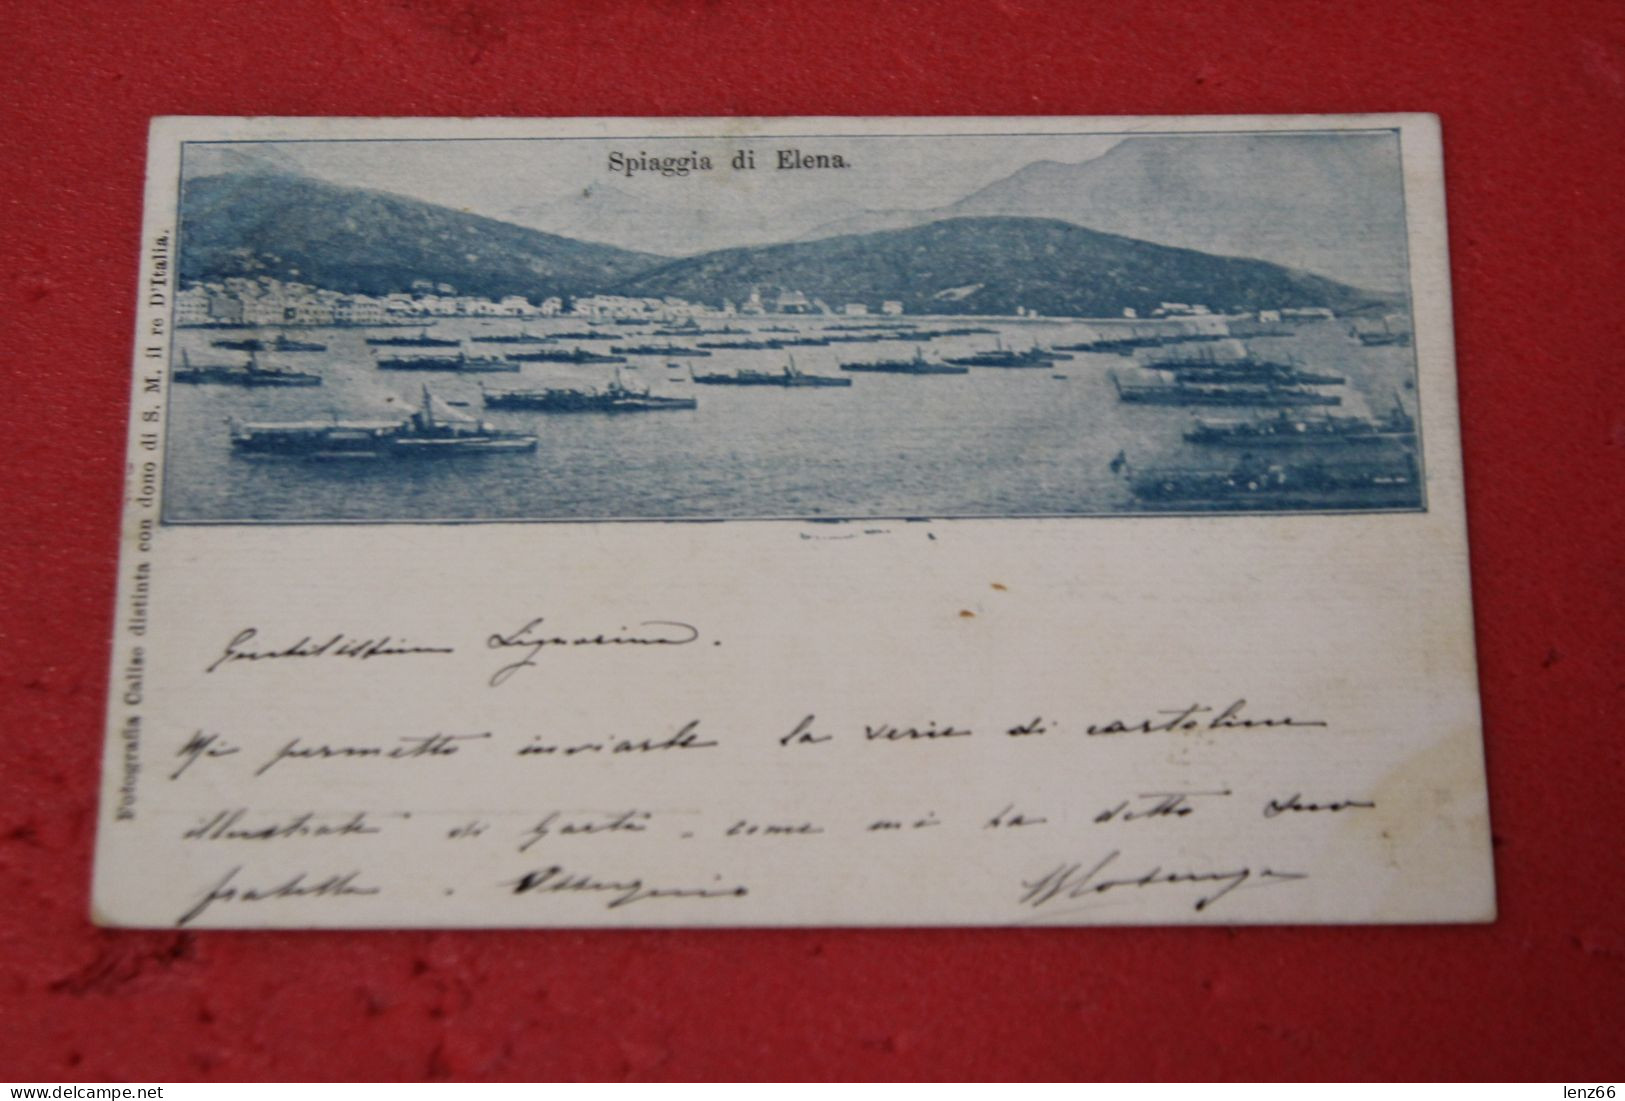 Spiaggia di Elena.
Fotografia Caliso distinta con dono di S. M. il re D'Italia.
Gentilissima Signorina.
Mi permetto inviarle la serie di cartoline
illustrate di Gaeta, come mi ha detto suo
fratello. Osseguio
lenz66